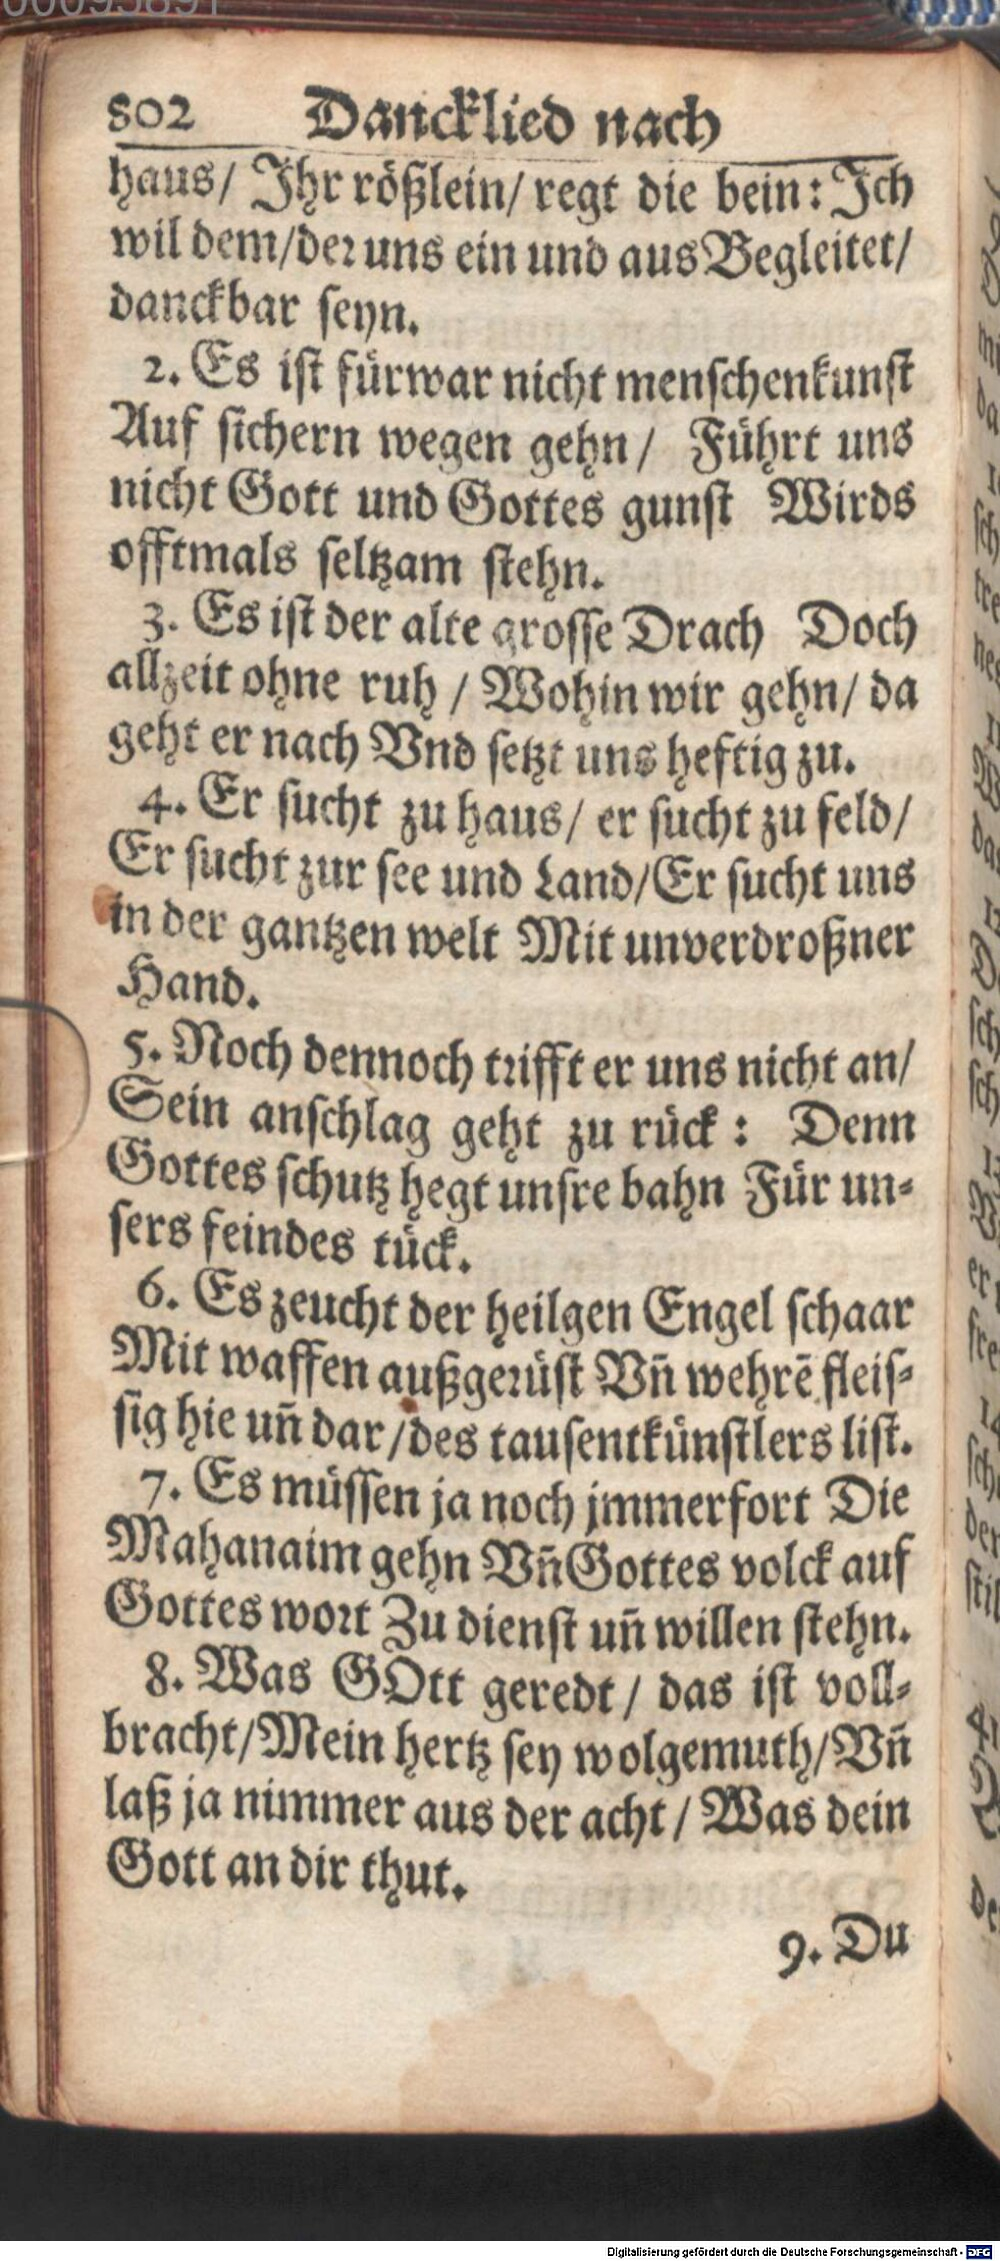 00095891
802 Dancklied nach
haus/ Ihr rößlein/ regt die bein: Ich
wil dem/der uns ein und aus Begleitet/
danckbar seyn.
2. Es ist fürwar nicht menschenkunst
Auf sichern wegen gehn/ Führt uns
nicht Gott und Gottes gunst Wirds
offtmals seltzam stehn.
3. Es ist der alte grosse Drach Doch
allzeit ohne ruh / Wohin wir gehn/ da
geht er nach Vnd setzt uns heftig zu.
4. Er sucht zu haus/ er sucht zu feld/
Er sucht zur see und Land/Er sucht uns
in der gantzen welt Mit unverdroßner
Hand.
5. Noch dennoch trifft er uns nicht an/
Sein anschlag geht zu rück: Denn
Gottes schutz hegt unsre bahn Für un-
sers feindes tück.
6. Es zeucht der heilgen Engel schaar
Mit waffen außgerüst Vn̄ wehrē fleis-
sig hie un̄ dar/des tausentkünstlers list.
7. Es müssen ja noch jmmerfort Die
Mahanaim gehn Vn̄ Gottes volck auf
Gottes wort Zu dienst un̄ willen stehn.
8. Was GOtt geredt/ das ist voll-
bracht/Mein hertz sey wolgemuth/Vn̄
laß ja nimmer aus der acht/ Was dein
Gott an dir thut.
9. Du
Digitalisierung gefördert durch die Deutsche Forschungsgemeinschaft - DFG